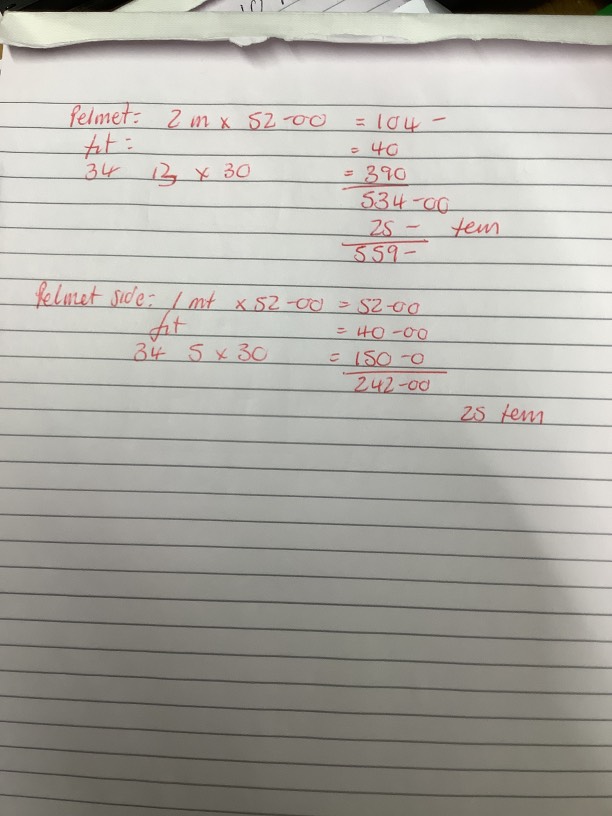 Pelmet: 2 m x 52-00 = 104 -
fit: = 40
34 13 x 30 = 390
534-00
25 - tem
559-
Pelmet side: 1 mt x 52-00 = 52-00
fit = 40-00
34 5 x 30 = 150-0
242-00
25 tem